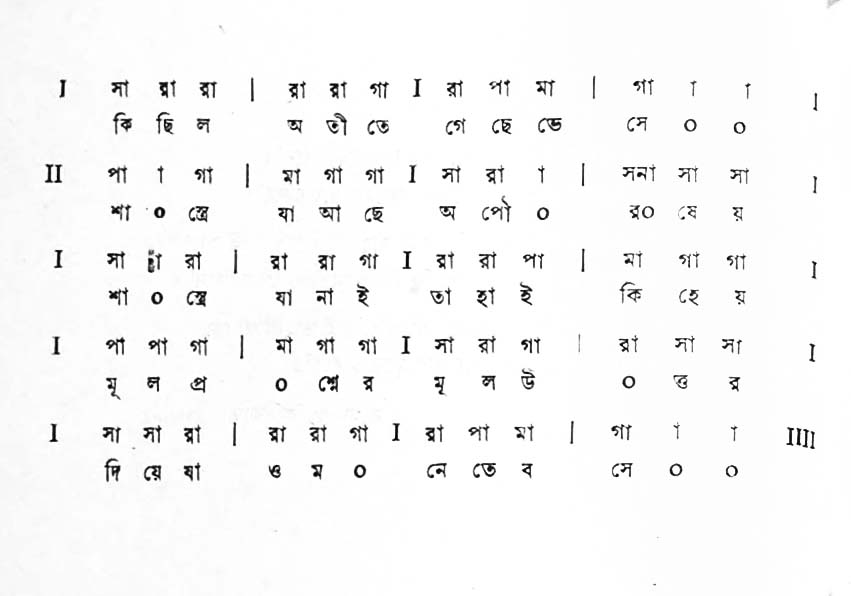 I সা রা রা | রা রা গা I রা পা মা | গা া া I
কি ছি ল অ তী তে গে ছে ভে সে ০ ০
II পা া গা | মা গা গা I সা রা া | সনা সা সা I
শা ০ স্ত্রে যা আ ছে অ পৌ ০ র০ ষে য়
I সা রা | রা রা গা I রা রা পা | মা গা গা I
শা ০ স্ত্রে যা না ই তা হা ই কি হে য়
I পা পা গা | মা গা গা I সা রা গা | রা সা সা I
মূ ল প্র ০ শ্নে র মূ ল উ ০ ত্ত র
I সা সা রা | রা রা গা I রা পা মা | গা া া IIII
দি য়ে যা ও ম ০ নে তে ব সে ০ ০